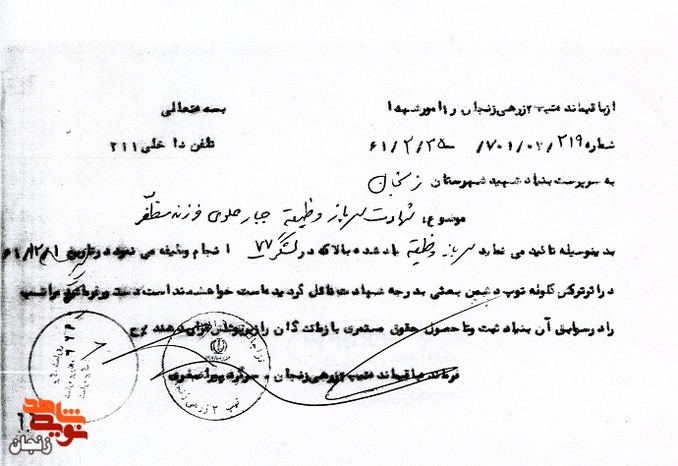 بسمه تعالی
از باقیمانده تیپ ۲ زرهی زنجان ر۱ امور شهدا
شماره ۷۰۱/۰۲/۲۱۹/ ۶۱/۲/۲۵
تلفن داخلی ۲۱۱
به سرپرست بنیاد شهید شهرستان زنجان
موضوع: شهادت سرباز وظیفه جبار علوی فرزند مظفر
بدینوسیله تائید می نماید سرباز وظیفه یاد شده بالا که در لشگر ۷۷ انجام وظیفه می نمود در تاریخ
در اثر ترکش گلوله توپ دشمن بعثی به درجه شهادت نائل گردیده است خواهشمند است مراتب
را در سوابق آن بنیاد ثبت و تا حصول حقوق مستمری بازماندگان را قرار دهند
فرمانده باقیمانده تیپ ۲ زرهی زنجان - سرگرد
تیپ ۲ زرهی زنجان
نوید شاهد
زنجان